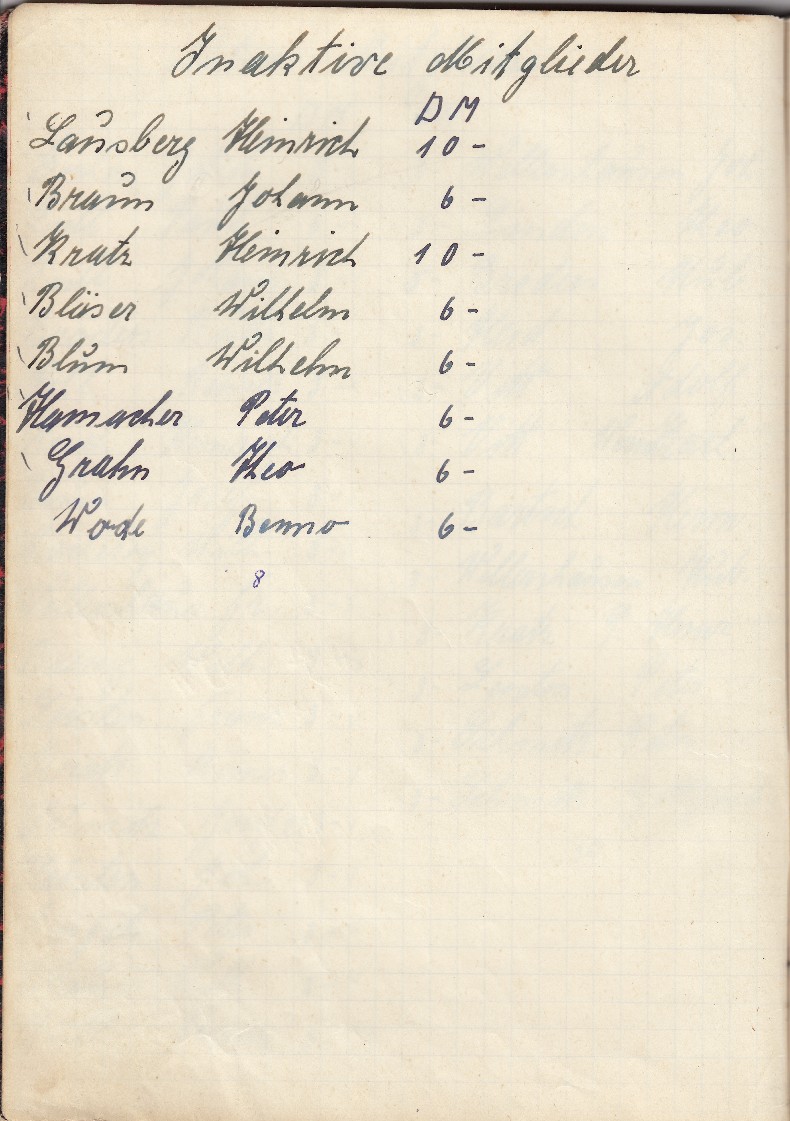 Inaktive Mitglieder
DM
Lausberg Heinrich 10 -
Braun Johann 6 -
Kratz Heinrich 10 -
Bläser Wilhelm 6 -
Blum Wilhelm 6 -
Hamacher Peter 6 -
Grahn Theo 6 -
Wode Benno 6 -
8